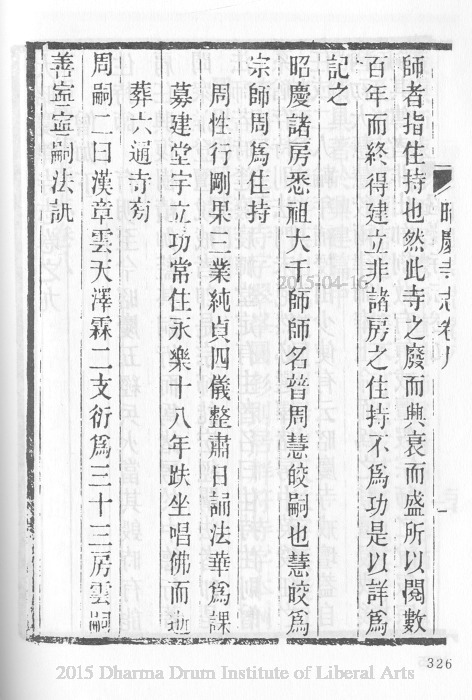 昭慶寺志卷
師者指住持也然此寺之廢而興衰而盛所以閱數
百年而終得建立非諸房之住持不爲功是以詳爲
記之
昭慶諸房悉祖大千師師名普周慧皎嗣也慧皎爲
宗師周爲住持
周性行剛果三業純貞四儀整肅日誦法華爲課
募建堂宇立功常住永樂十八年趺坐唱佛而逝
葬六通寺旁
周嗣二曰漢章雲天澤霖二支衍爲三十三房雲嗣
善寍寍嗣法訛
2015-04-16
326
2015 Dharma Drum Institute of Liberal Arts